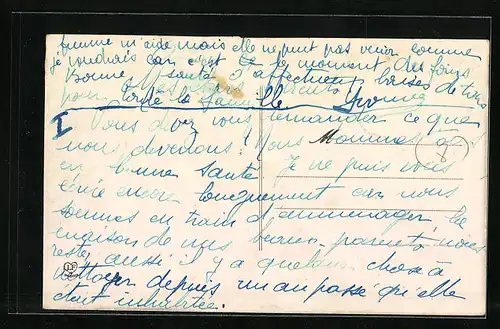 femme m'aide mais elle ne peut pas venir comme
je voudrais car c'est le moment des foins
Bonne santé d'affectueux baisers de tous
pour toute la famille Yvonne
Vous devez vous demander ce que
nous devenons! Nous sommes
en bonne santé Je ne puis vous
écrire encore longuement car nous
sommes en train d'emménager la
maison de nos beaux-parents nous
reste aussi y a quelque chose à
nettoyer depuis un an passé qu'elle
était inhabitée.